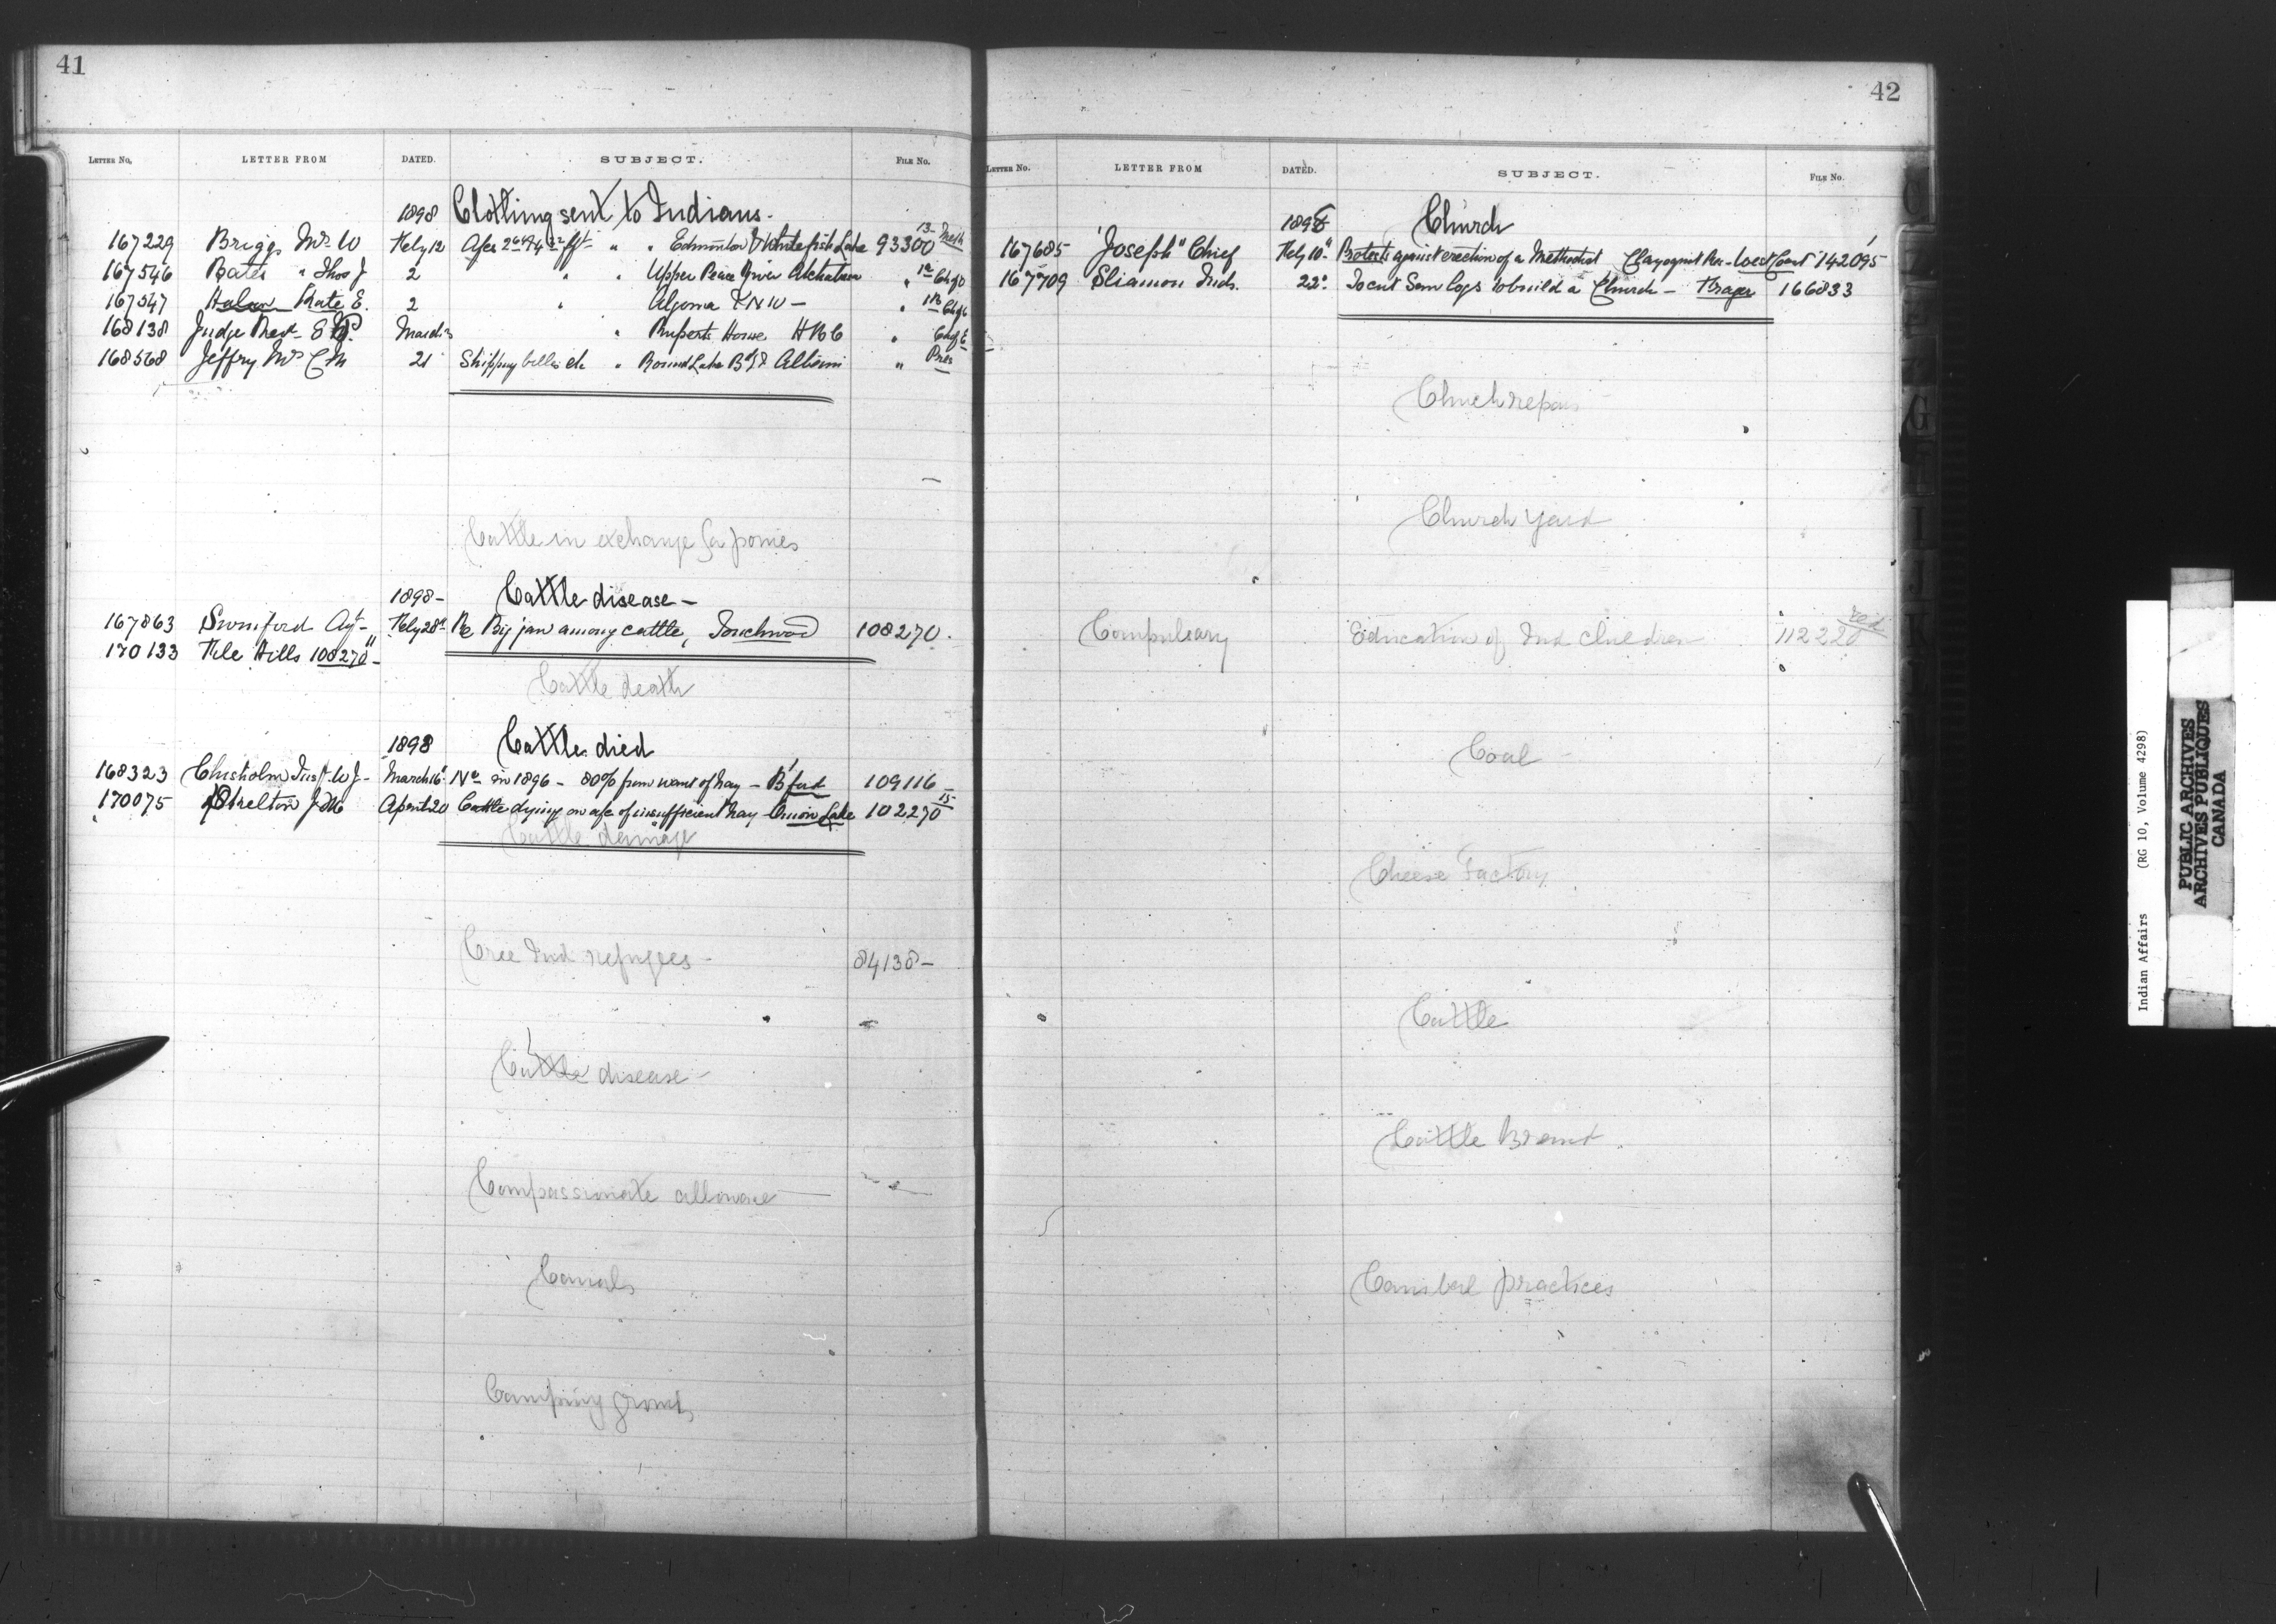 41
LETTER No. LETTER FROM DATED. SUBJECT. FILE No.
1898 Clothing sent to Indians -
167229 Briggs Mrs W Feby 12 " " Edmonton & Whitefish Lake 93300 13 Meth
167546 Bates " Thos J 2 " " Upper Peace River "
167547 Kate E. 2 " Algoma & N W - "
168138 Judge " Ruperts House H B C "
168568 Jeffry Mrs C M 21 Shipping bills etc " Round Lake Alberni " Pres
Cattle in exchange for ponies
1898 - Cattle disease -
167863 Swinford Agt - Feby 28" Re Big jaw among cattle, Touchwood 108270.
170133 File Hills 108270" -
Cattle death
1898 Cattle died
168323 Chisholm Inspt. W J - March 16" in 1896 - 80% from want of hay - B'ford 109116
170075 April 20 Cattle dying on a/c of insufficient hay - Onion Lake 102270 15
Cattle damage
Cree Ind refugees - 84138 -
Cattle disease -
Compassionate allowance
Canals
Camping grounds
42
LETTER No. LETTER FROM DATED. SUBJECT. FILE No.
1898 Church
167685 "Joseph" Chief Feby 10" Protests against erection of a Methodist Clayoquot Res - West Coast 142095
167709 Sliamon Inds. 22" To cut Sem logs to build a Church - Fraser 166833
Church repairs
Church yard
Compulsary Education of Ind Children 112220 red
Coal -
Cheese Factory
Cattle
Cattle Brand
Canibal practices
Indian Affairs (RG 10, Volume 4298)
PUBLIC ARCHIVES
ARCHIVES PUBLIQUES
CANADA